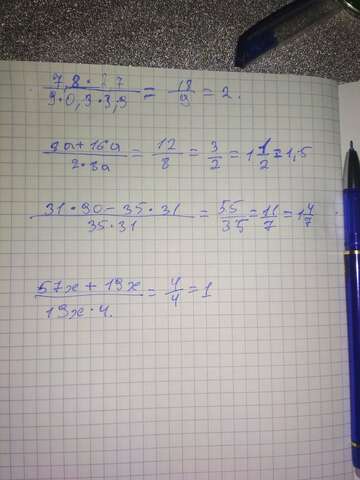 7,8 · 27 / 9 · 0,3 · 3,9 = 18/9 = 2.
8a + 16a / 2 · 8a = 12/8 = 3/2 = 1 1/2 = 1,5
31 · 90 − 35 · 31 / 35 · 31 = 55/35 = 11/7 = 1 4/7
57x + 19x / 19x · 4. = 4/4 = 1